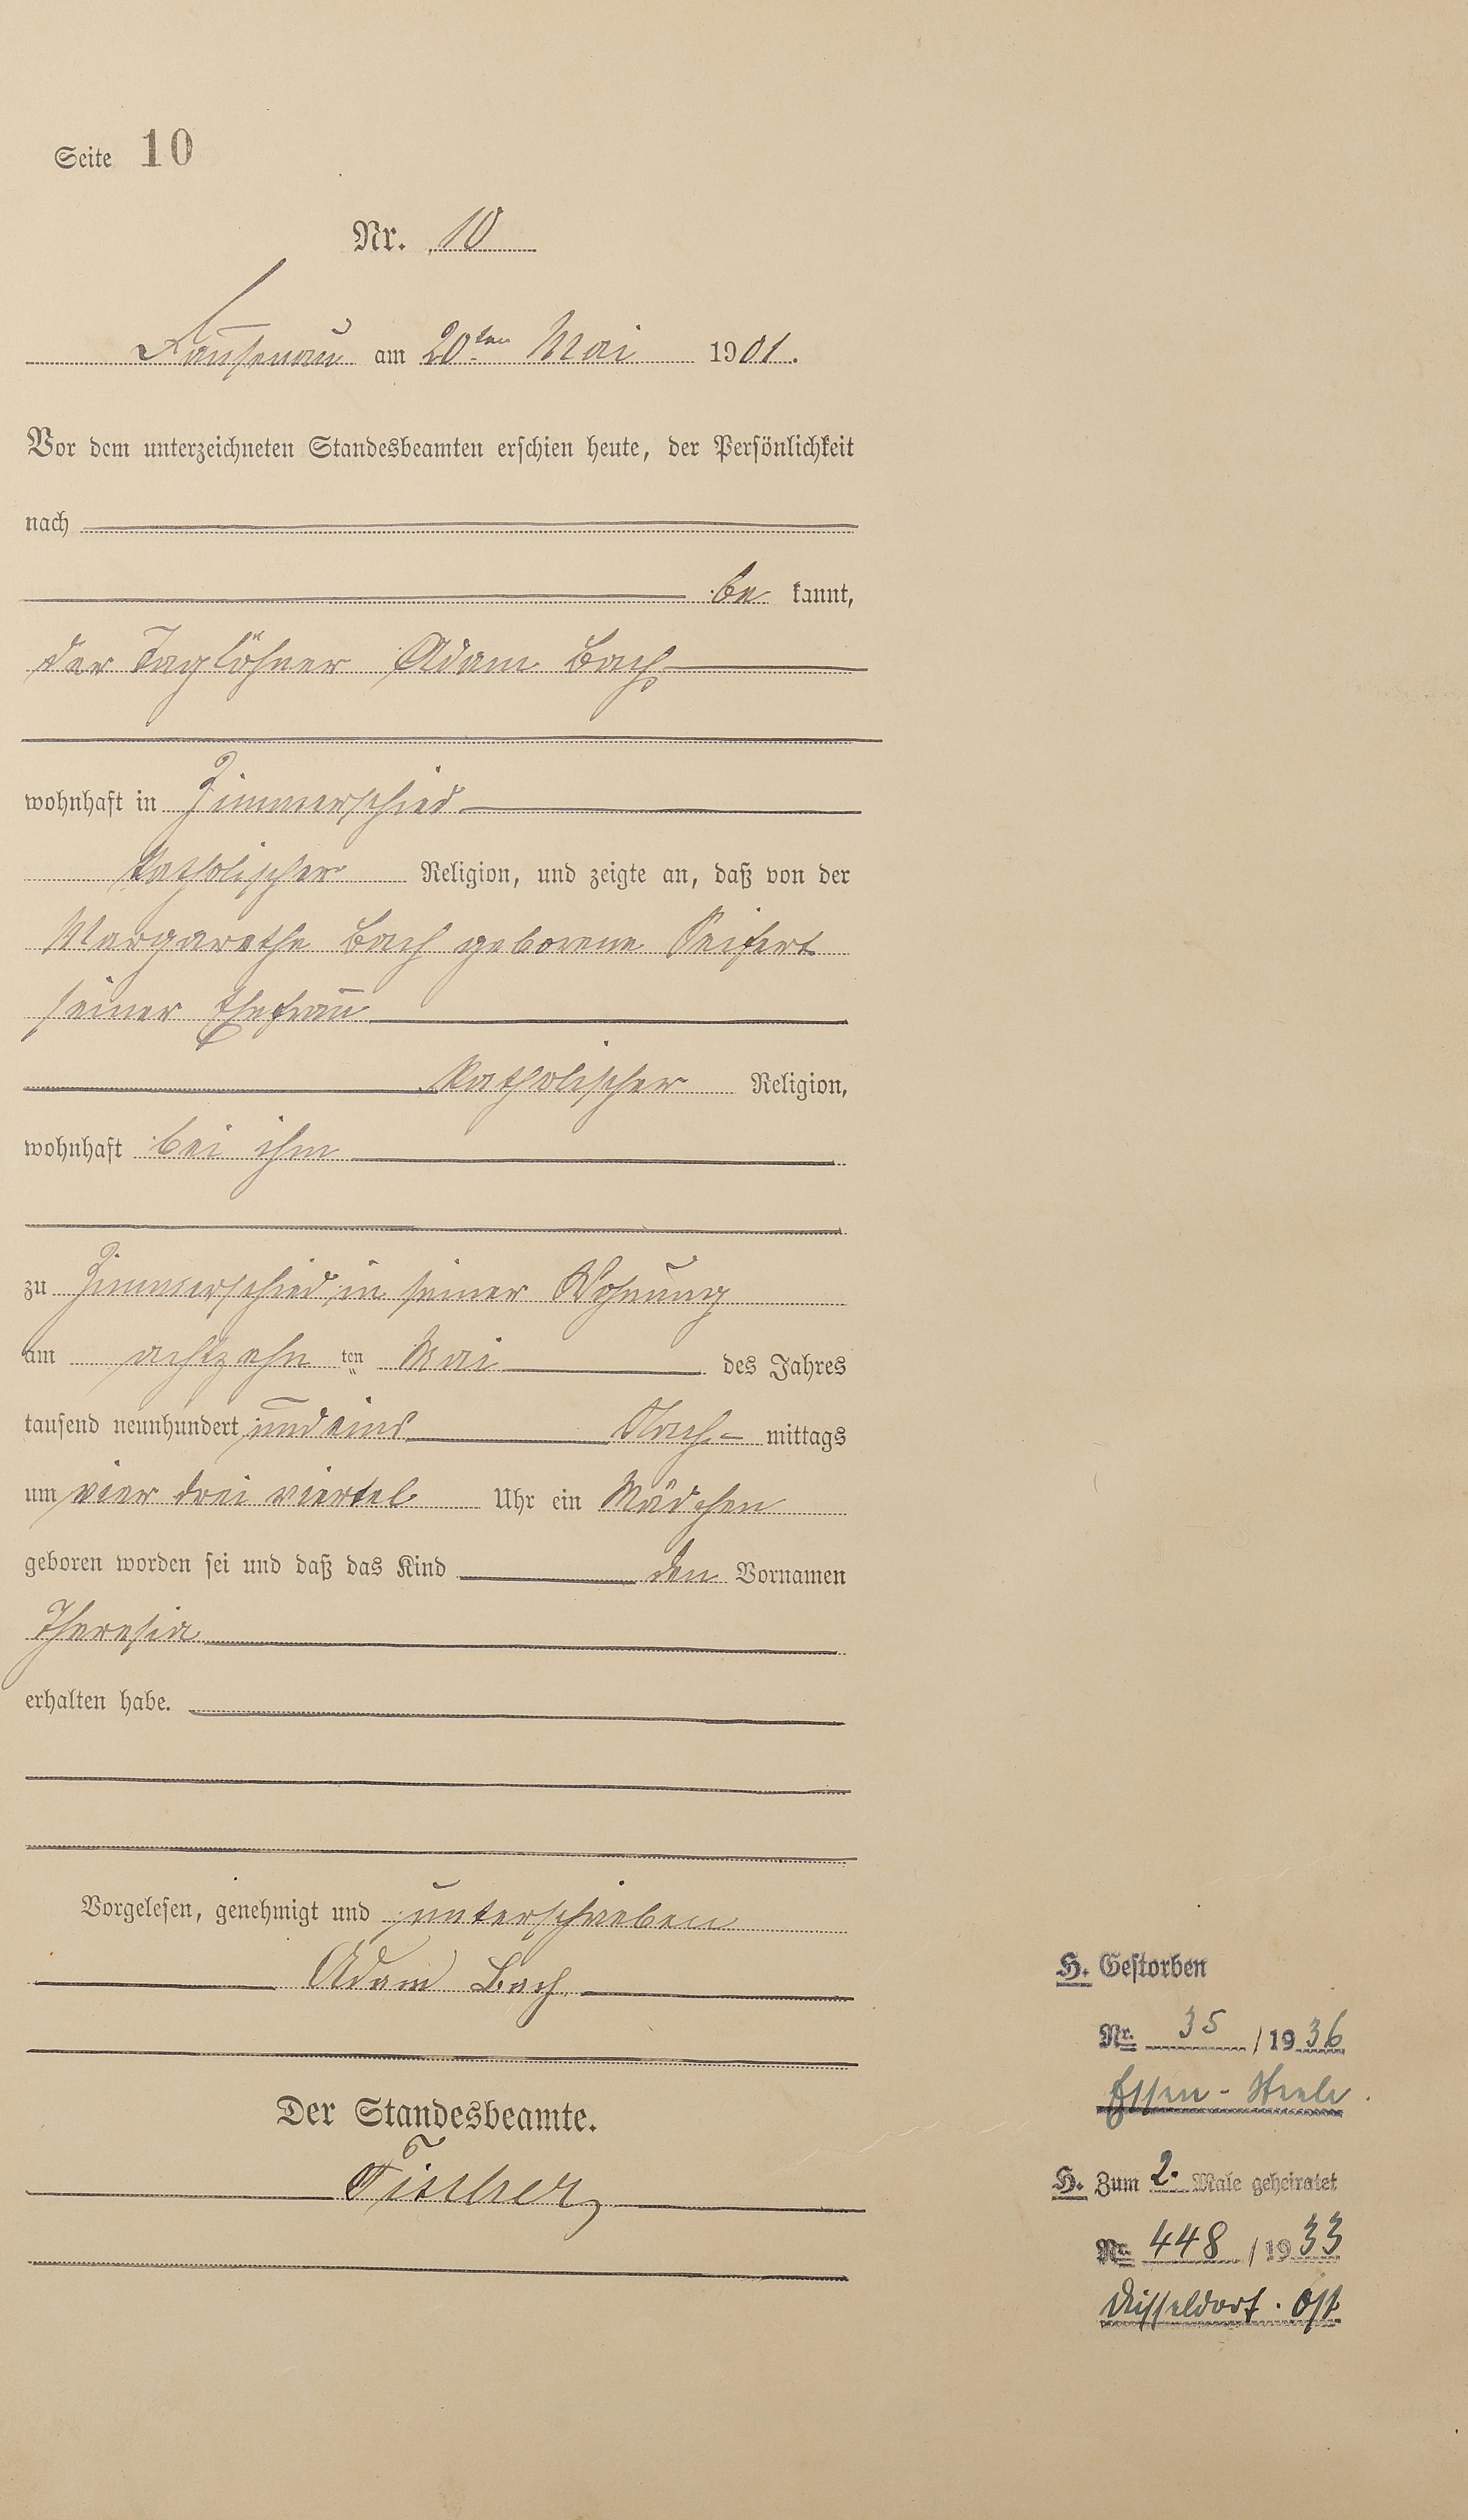 Seite 10
Nr. 10
Dausenau am 20ten Mai 1901.
Vor dem unterzeichneten Standesbeamten erschien heute, der Persönlichkeit
nach
be kannt,
der Taglöhner Adam Bach
wohnhaft in Zimmerschied
katholischer Religion, und zeigte an, daß von der
Margarethe Bach geborene Seifert
seiner Ehefrau
katholischer Religion,
wohnhaft bei ihm
zu Zimmerschied in seiner Wohnung
am achtzehn ten Mai des Jahres
tausend neunhundert und eins Nach- mittags
um vier drei viertel Uhr ein Mädchen
geboren worden sei und daß das Kind den Vornamen
Theresia
erhalten habe.
Vorgelesen, genehmigt und unterschrieben
Adam Bach
Der Standesbeamte.
Fischer
H. Gestorben
Nr. 35 / 1936
Essen - Steele.
H. Zum 2. Male geheiratet
Nr. 448 / 1933
Düsseldorf. Ost